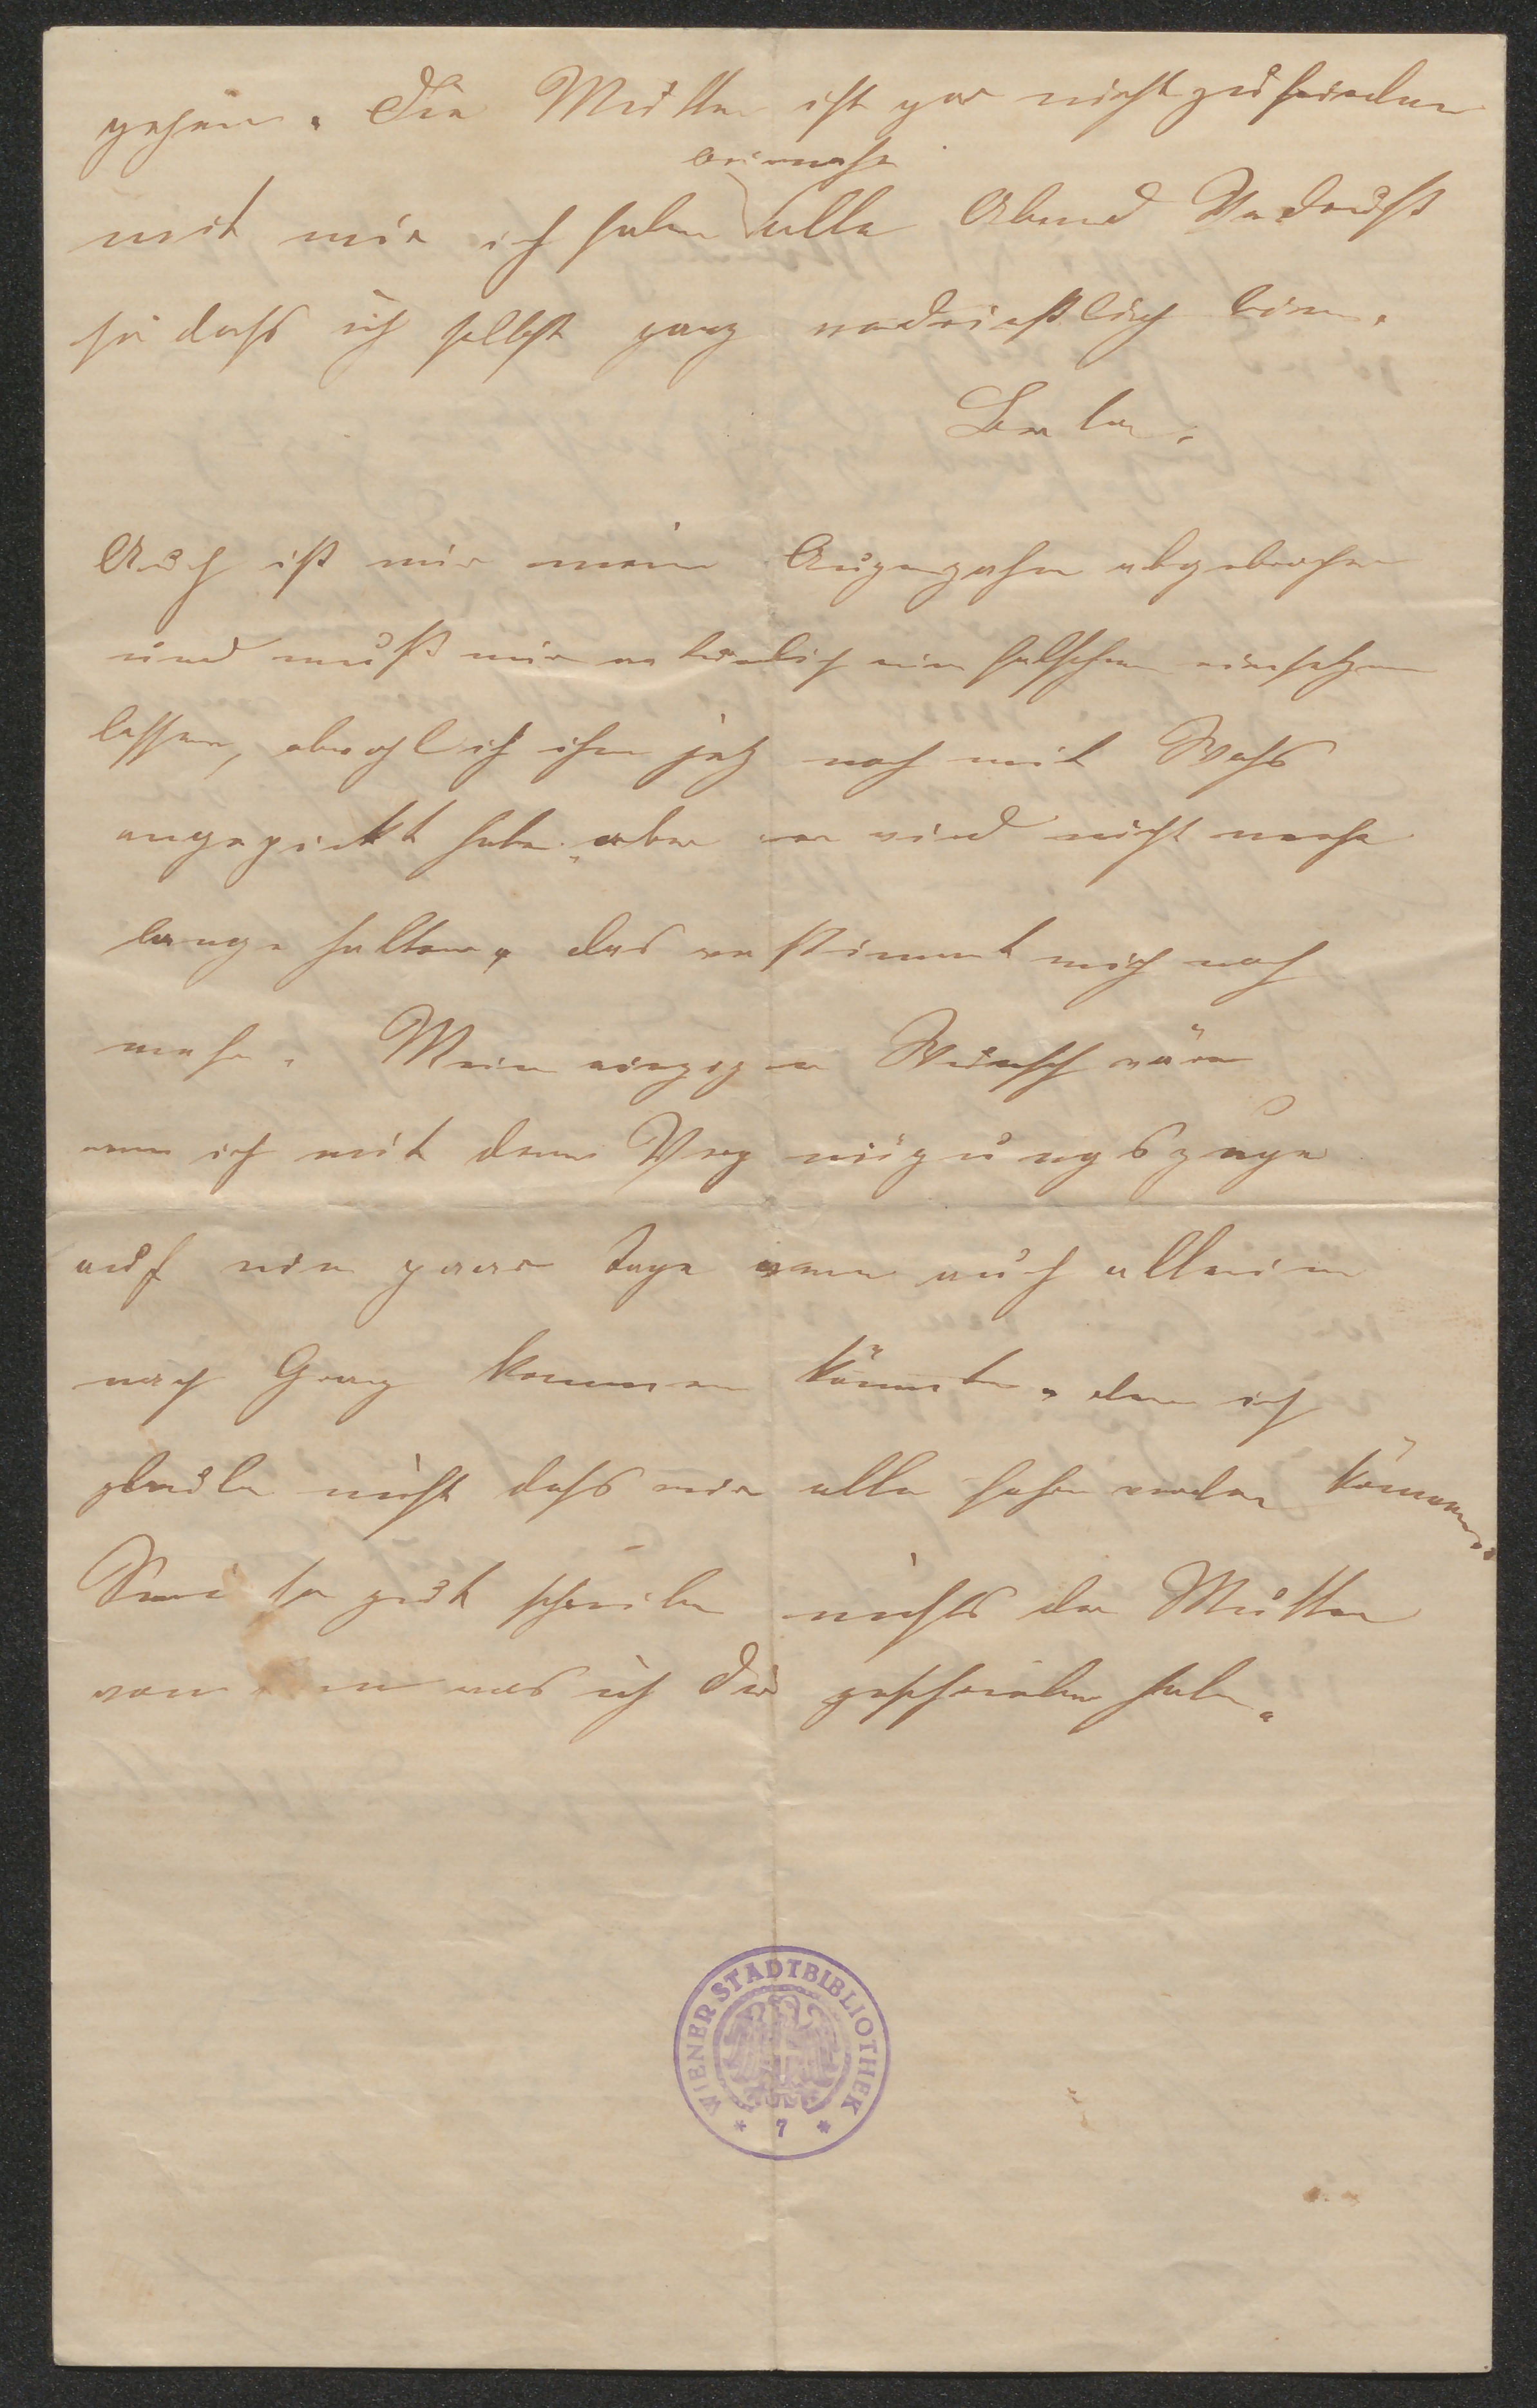 gehen. Die Mutter ist gar nicht zufrieden
beinahe
mit mir ich habe alle Abend Verdruß
so dass ich selbst ganz verdrießlich bin.
Auch ist mir mein Augenzahn abgebrochen
und muß mir natürlich ein falschen einsetzen
lassen, obwohl ich ihn jetz noch mit Wachs
angepickt habe, aber er wird nicht mehr
lange halten, das verstimmt mich noch
mehr. Mein einziger Wunsch wäre
wenn ich mit dem Vergnügungszuge
auf ein paar Tage wenn auch allein
nach Graz kommen könnte, den ich
glaube nicht dass wir alle fahren werden können.
Sei so gut schreibe nichts der Mutter
von was ich Dir geschrieben habe.
WIENER STADTBIBLIOTHEK
* 7 *